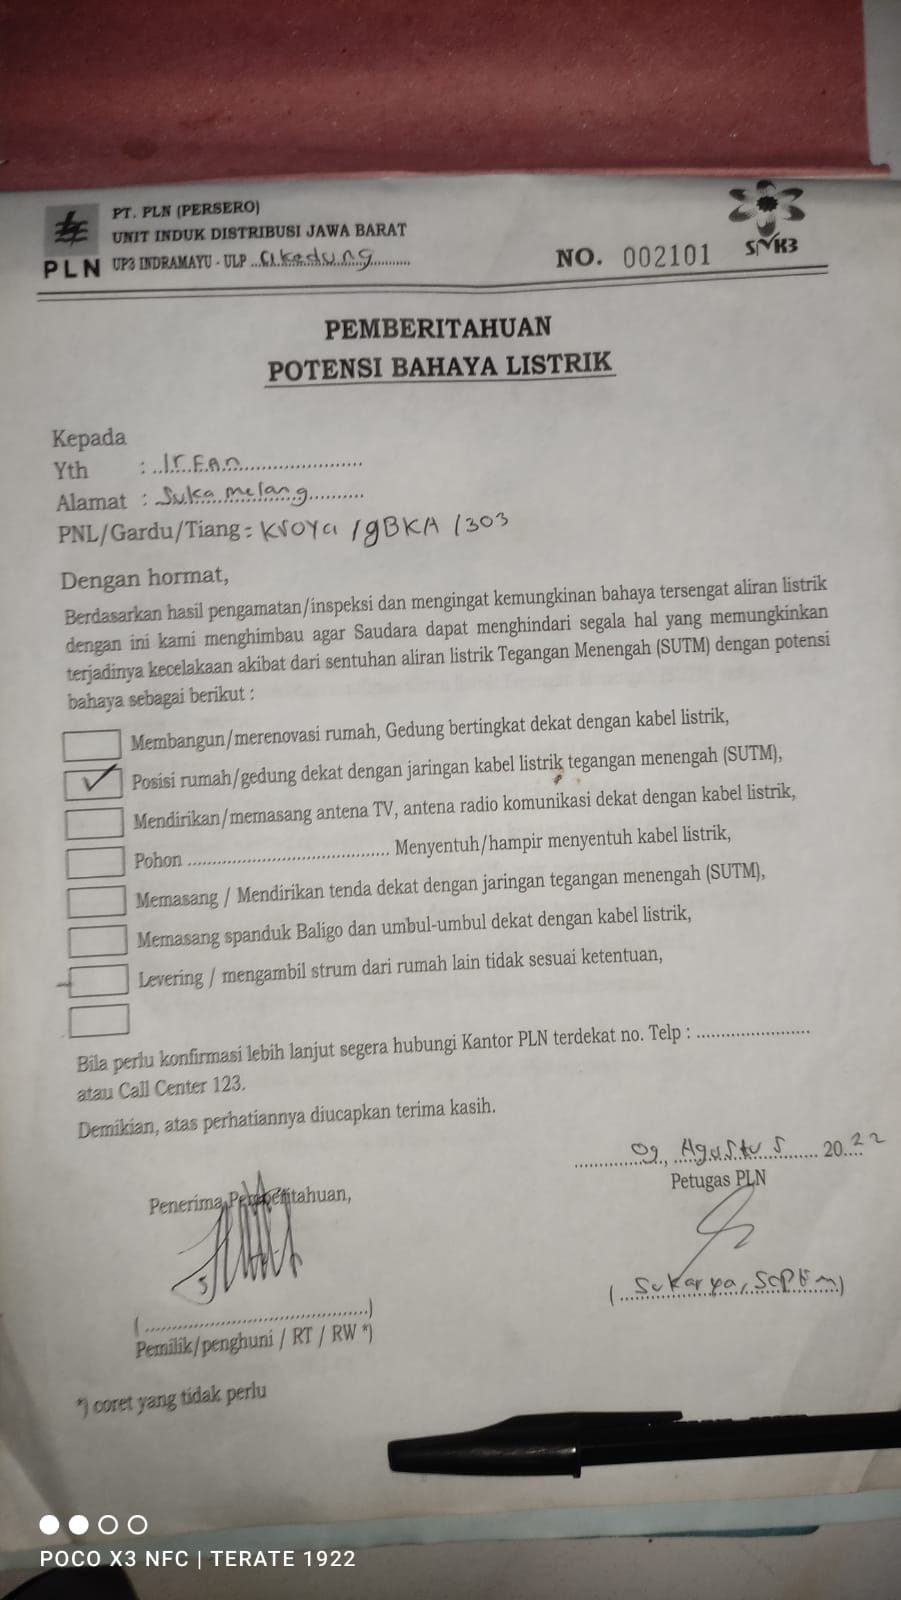 PT. PLN (PERSERO)
UNIT INDUK DISTRIBUSI JAWA BARAT
PLN UP3 INDRAMAYU - ULP ..Cikedung..........
NO. 002101
SMK3
PEMBERITAHUAN
POTENSI BAHAYA LISTRIK
Kepada
Yth : ..Irfan......................
Alamat : Sukamelang..........
PNL/Gardu/Tiang : Kroya /gBKA /303
Dengan hormat,
Berdasarkan hasil pengamatan/inspeksi dan mengingat kemungkinan bahaya tersengat aliran listrik
dengan ini kami menghimbau agar Saudara dapat menghindari segala hal yang memungkinkan
terjadinya kecelakaan akibat dari sentuhan aliran listrik Tegangan Menengah (SUTM) dengan potensi
bahaya sebagai berikut :
Membangun/merenovasi rumah, Gedung bertingkat dekat dengan kabel listrik,
✓ Posisi rumah/gedung dekat dengan jaringan kabel listrik tegangan menengah (SUTM),
Mendirikan/memasang antena TV, antena radio komunikasi dekat dengan kabel listrik,
Pohon ........................................ Menyentuh/hampir menyentuh kabel listrik,
Memasang / Mendirikan tenda dekat dengan jaringan tegangan menengah (SUTM),
Memasang spanduk Baligo dan umbul-umbul dekat dengan kabel listrik,
Levering / mengambil strum dari rumah lain tidak sesuai ketentuan,
Bila perlu konfirmasi lebih lanjut segera hubungi Kantor PLN terdekat no. Telp : .......................
atau Call Center 123.
Demikian, atas perhatiannya diucapkan terima kasih.
..............09, Agustus...... 20.22
Penerima Pemberitahuan,
Petugas PLN
(Sukarya, )
(........................................)
Pemilik/penghuni / RT / RW *)
*) coret yang tidak perlu
POCO X3 NFC | TERATE 1922